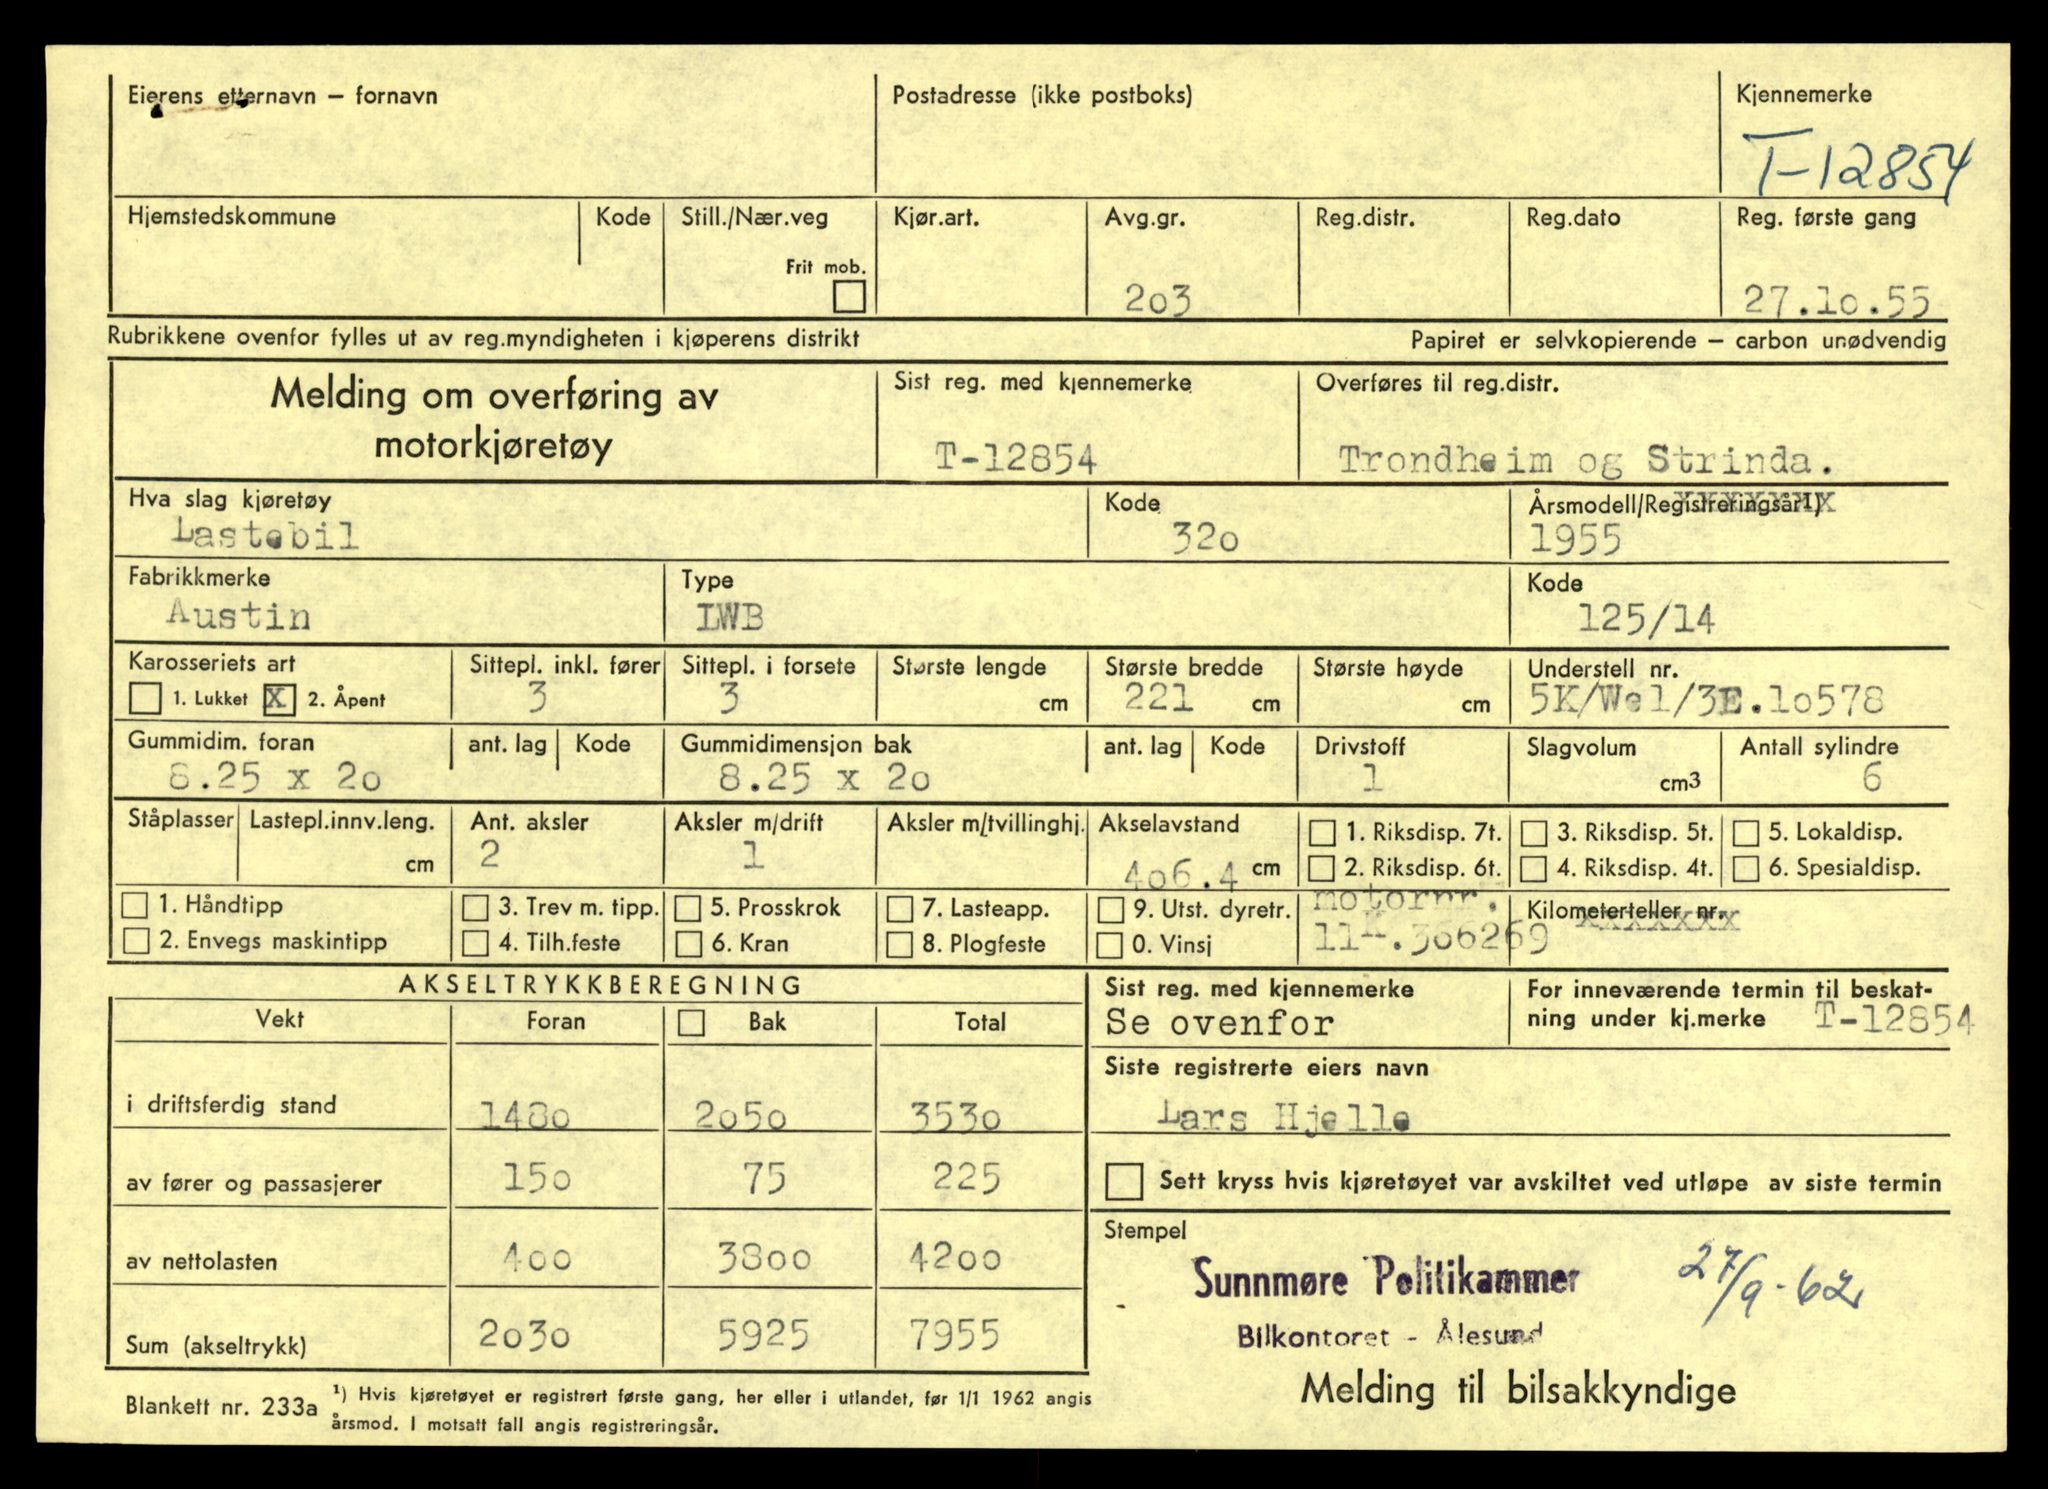 Eierens etternavn – fornavn
Postadresse (ikke postboks)
Kjennemerke
T-12854
Hjemstedskommune
Kode
Still./Nær.veg
Frit mob.
Kjør.art.
Avg.gr.
2o3
Reg.distr.
Reg.dato
Reg. første gang
27.1o.55
Rubrikkene ovenfor fylles ut av reg.myndigheten i kjøperens distrikt
Papiret er selvkopierende – carbon unødvendig
Melding om overføring av
motorkjøretøy
Sist reg. med kjennemerke
T-12854
Overføres til reg.distr.
Trondheim og Strinda.
Hva slag kjøretøy
Lastebil
Kode
32o
Årsmodell/Registreringsår1)
1955
Fabrikkmerke
Austin
Type
LWB
Kode
125/14
Karosseriets art
1. Lukket X 2. Åpent
Sittepl. inkl. fører
3
Sittepl. i forsete
3
Største lengde
cm
Største bredde
221 cm
Største høyde
cm
Understell nr.
5K/Wel/3E.1o578
Gummidim. foran
8.25 x 2o
ant. lag
Kode
Gummidimensjon bak
8.25 x 2o
ant. lag
Kode
Drivstoff
1
Slagvolum
cm3
Antall sylindre
6
Ståplasser
Lastepl.innv.leng.
cm
Ant. aksler
2
Aksler m/drift
1
Aksler m/tvillinghj.
Akselavstand
4o6.4 cm
1. Riksdisp. 7t.
2. Riksdisp. 6t.
3. Riksdisp. 5t.
4. Riksdisp. 4t.
5. Lokaldisp.
6. Spesialdisp.
1. Håndtipp
2. Envegs maskintipp
3. Trev m. tipp.
4. Tilh.feste
5. Prosskrok
6. Kran
7. Lasteapp.
8. Plogfeste
9. Utst. dyretr.
0. Vinsj
motornr.
Kilometerteller nr.
xxxxxxx
AKSELTRYKKBEREGNING
Vekt
Foran
Bak
Total
i driftsferdig stand
148o
2o5o
353o
av fører og passasjerer
15o
75
225
av nettolasten
4oo
38oo
42oo
Sum (akseltrykk)
2o3o
5925
7955
Sist reg. med kjennemerke
Se ovenfor
For inneværende termin til beskat-
ning under kj.merke T-12854
Siste registrerte eiers navn
Lars Hjelle
Sett kryss hvis kjøretøyet var avskiltet ved utløpe av siste termin
Stempel
Sunnmøre Politikammer
Bilkontoret - Ålesund
27/9-62
Melding til bilsakkyndige
Blankett nr. 233a
1) Hvis kjøretøyet er registrert første gang, her eller i utlandet, før 1/1 1962 angis
årsmod. I motsatt fall angis registreringsår.